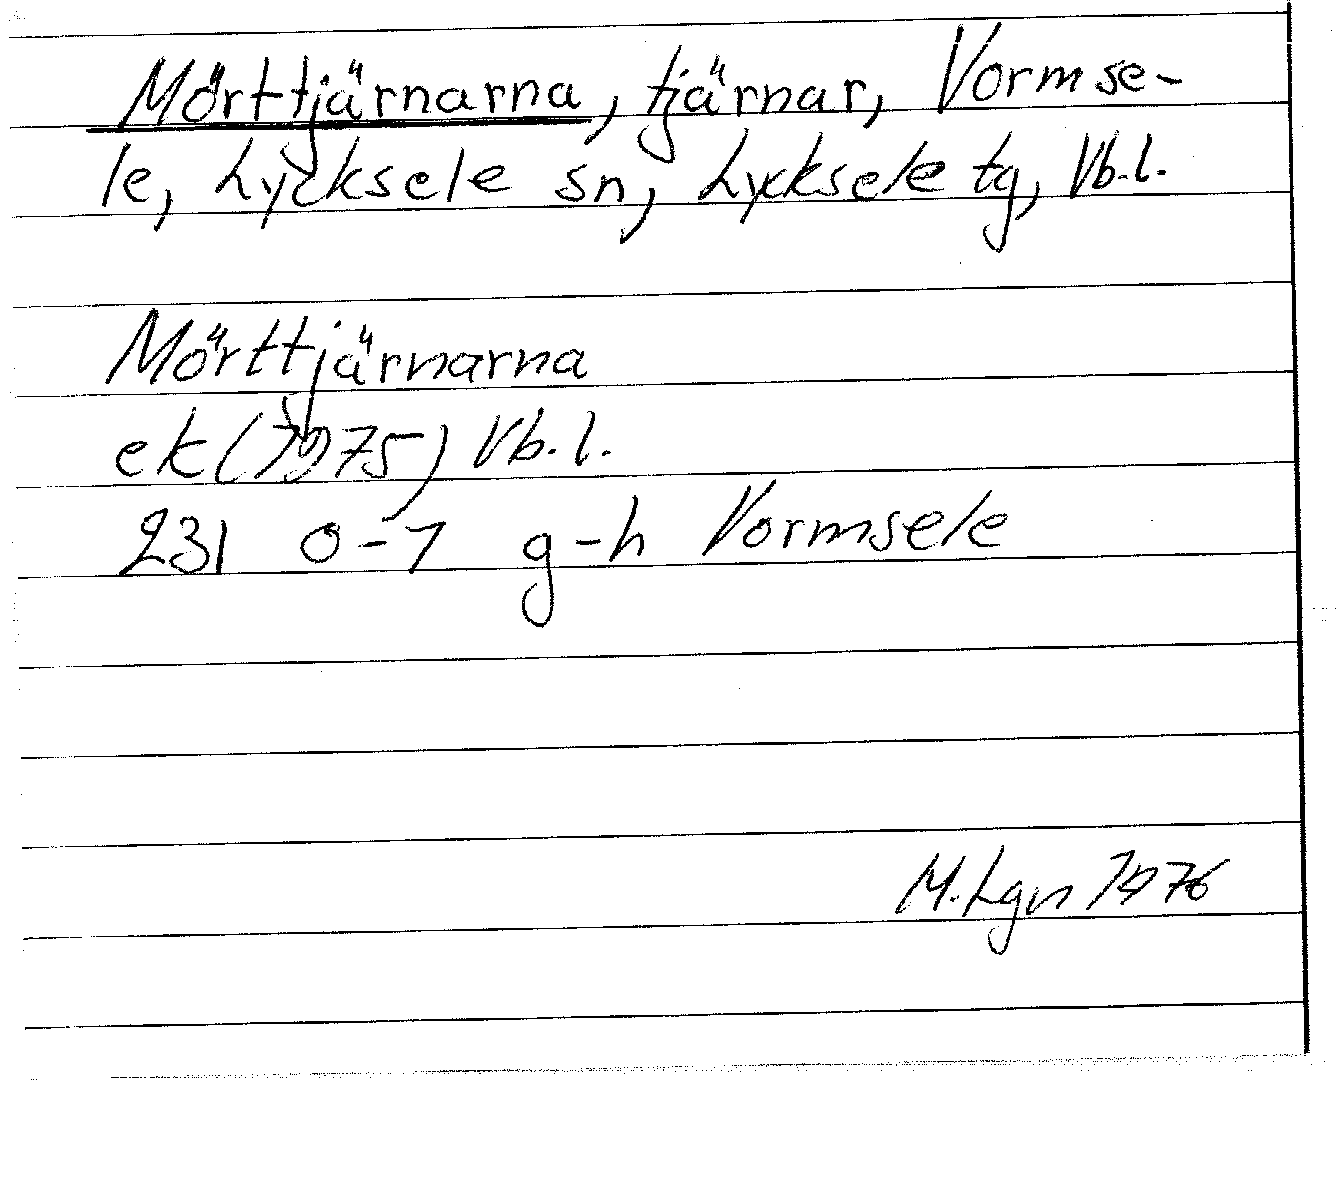 Mörttjärnarna, tjärnar, Vormse-
le, Lycksele sn, Lycksele tg, Vb.l.
Mörttjärnarna
ek (1975) Vb.l.
231 0-1 g-h Vormsele
M. Lgn 1976